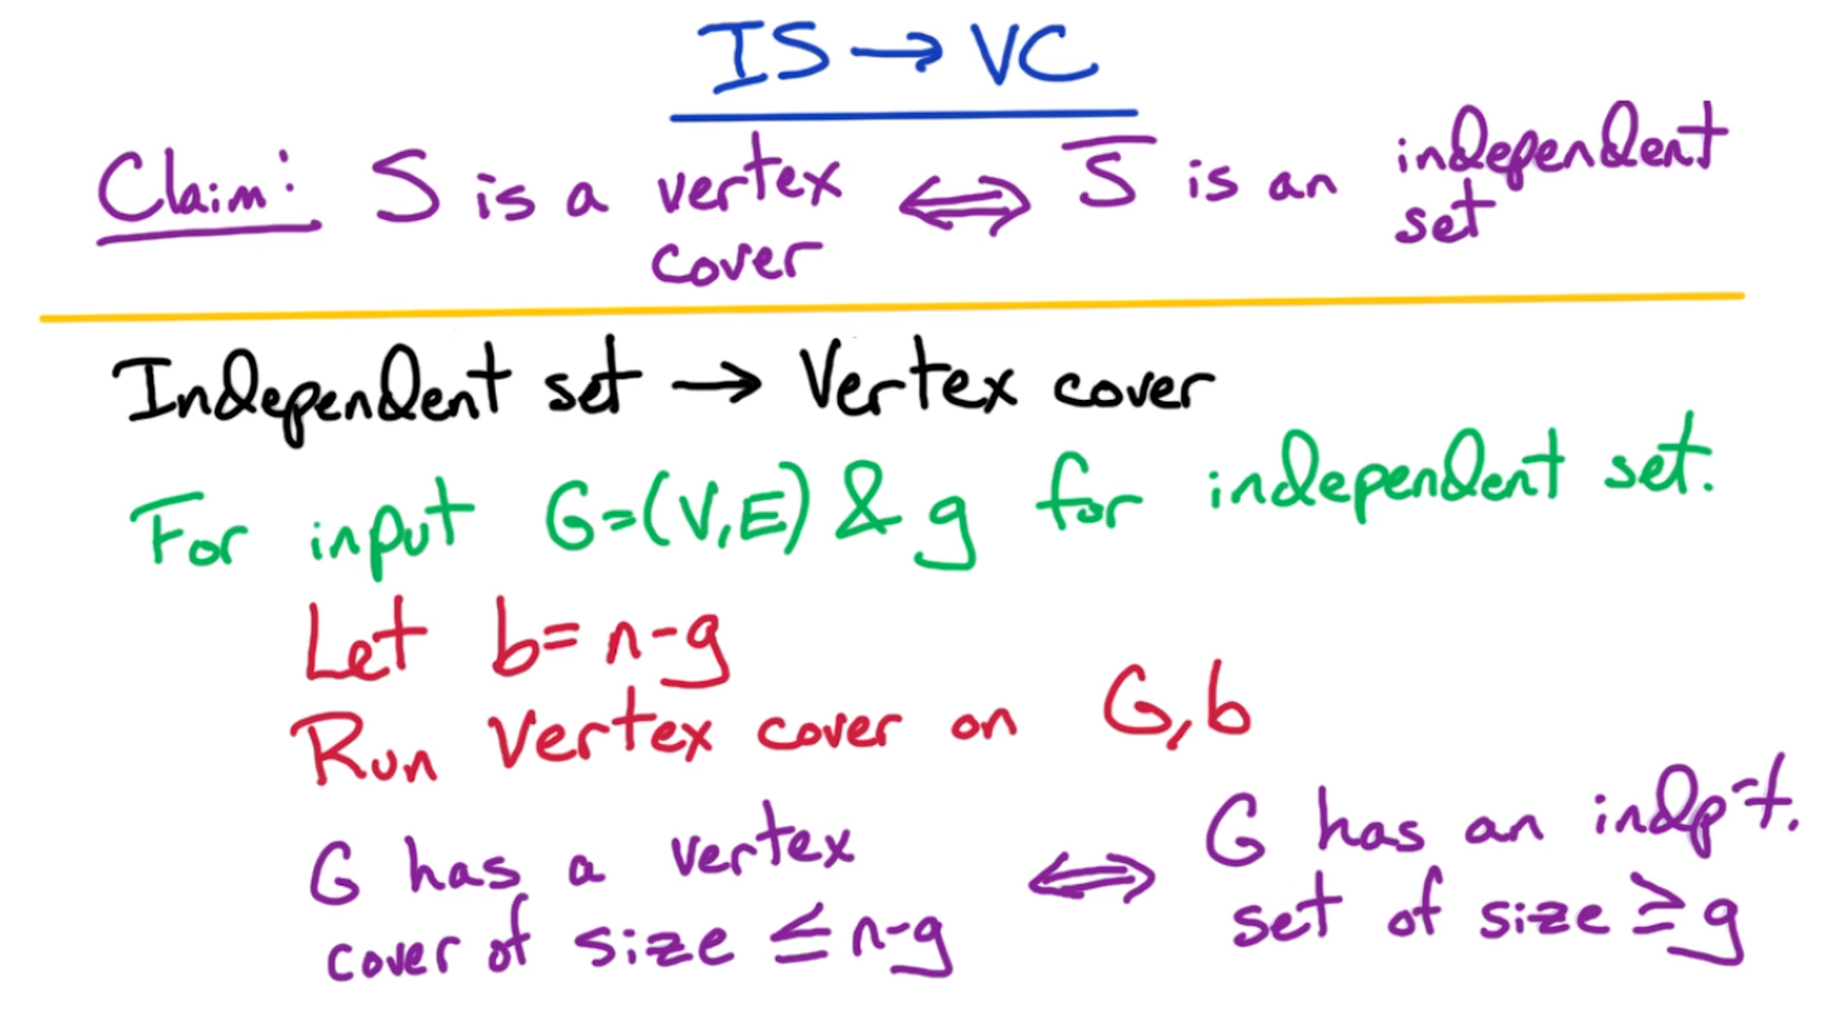 IS → VC
Claim: S is a vertex cover ⟺ S̅ is an independent set
Independent set → Vertex cover
For input G=(V,E) & g for independent set.
Let b=n-g
Run vertex cover on G,b
G has a vertex cover of size ≤ n-g ⟺ G has an indp-t. set of size ≥ g